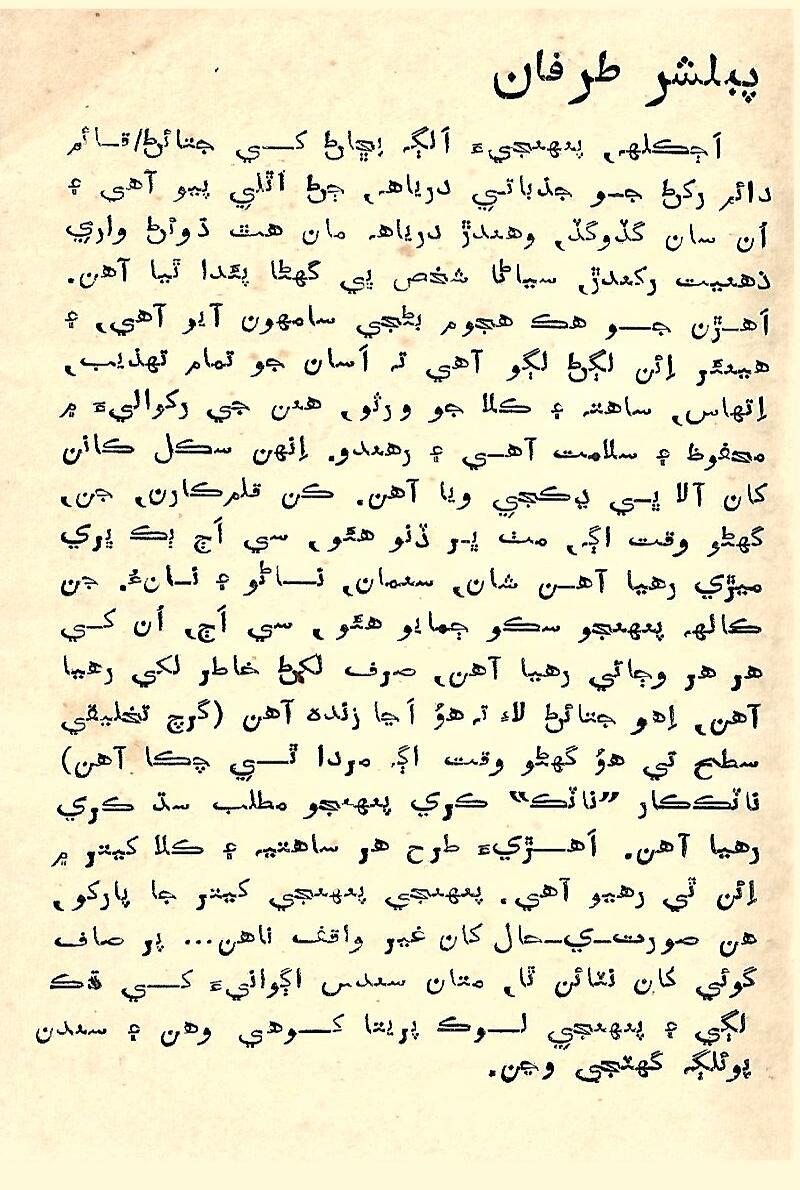 پبلشر طرفان
اَڄڪلهہ، پنهنجيءَ اَلڳہ پڇاڻ کــي جتائڻ/قــائم
دائم رکڻ جــو جذباتــي درياهہ، ڄڻ اٿلي پيو آهي ۽
اُن سان گڏوگڏ، وهندڙ درياهہ مان هٿ ڌوئڻ واري
ذهنيت رکندڙ، سياڻا شخص پي گهڻا پئدا ٿيا آهن.
اَهــڙن جــو هڪ هجوم بڻجي سامهون آيو آهي، ۽
هينئر اِئن لڳڻ لڳو آهي تہ اَسان جو تمام تهذيب،
اِتهاس، ساهتہ ۽ ڪلا جو ورثو، هنن جي رکواليءَ ۾
محفوظ ۽ سلامت آهــي ۽ رهندو. اِنهن سڪل کانن
کان آلا پــي ڍڪجي ويا آهن. ڪن قلمڪارن، جن،
گهڻو وقت اڳہ، مٽ ڀــر ڏنو هئو، سي اَڄ ٻڪ ڀري
ميڙي رهيا آهــن شان، سنمان، نــاڻو ۽ نــانءُ. جن
ڪالهہ پنهنجو سڪو ڄمايو هئو، سي اَڄ، اُن کــي
هر هر وڄائي رهيا آهن، صرف لکڻ خاطر لکي رهيا
آهن، اِهو جتائڻ لاءِ تہ هوُ اَڃا زنده آهن (گرچ تخليقي
سطح تي هوُ گهڻو وقت اڳہ مردا ٿــي چڪا آهن)
ناٽڪڪار ”ناٽڪ“ ڪري پنهنجو مطلب سڌ ڪري
رهيا آهن. اَهــڙيءَ طرح هر ساهتيہ ۽ ڪلا کيتر ۾
اِئن ٿي رهيو آهي. پنهنجي پنهنجي کيتر جا پارکو،
هن صورت-ي-حال کان غير واقف ناهن... پر صاف
گوئي کان نٽائن ٿا، متان سندس اڳوانيءَ کــي ڌڪ
لڳي ۽ پنهنجي لــوڪ پريتا کــوهي وهن ۽ سندن
پوئلڳہ گهٽجي وڃن.